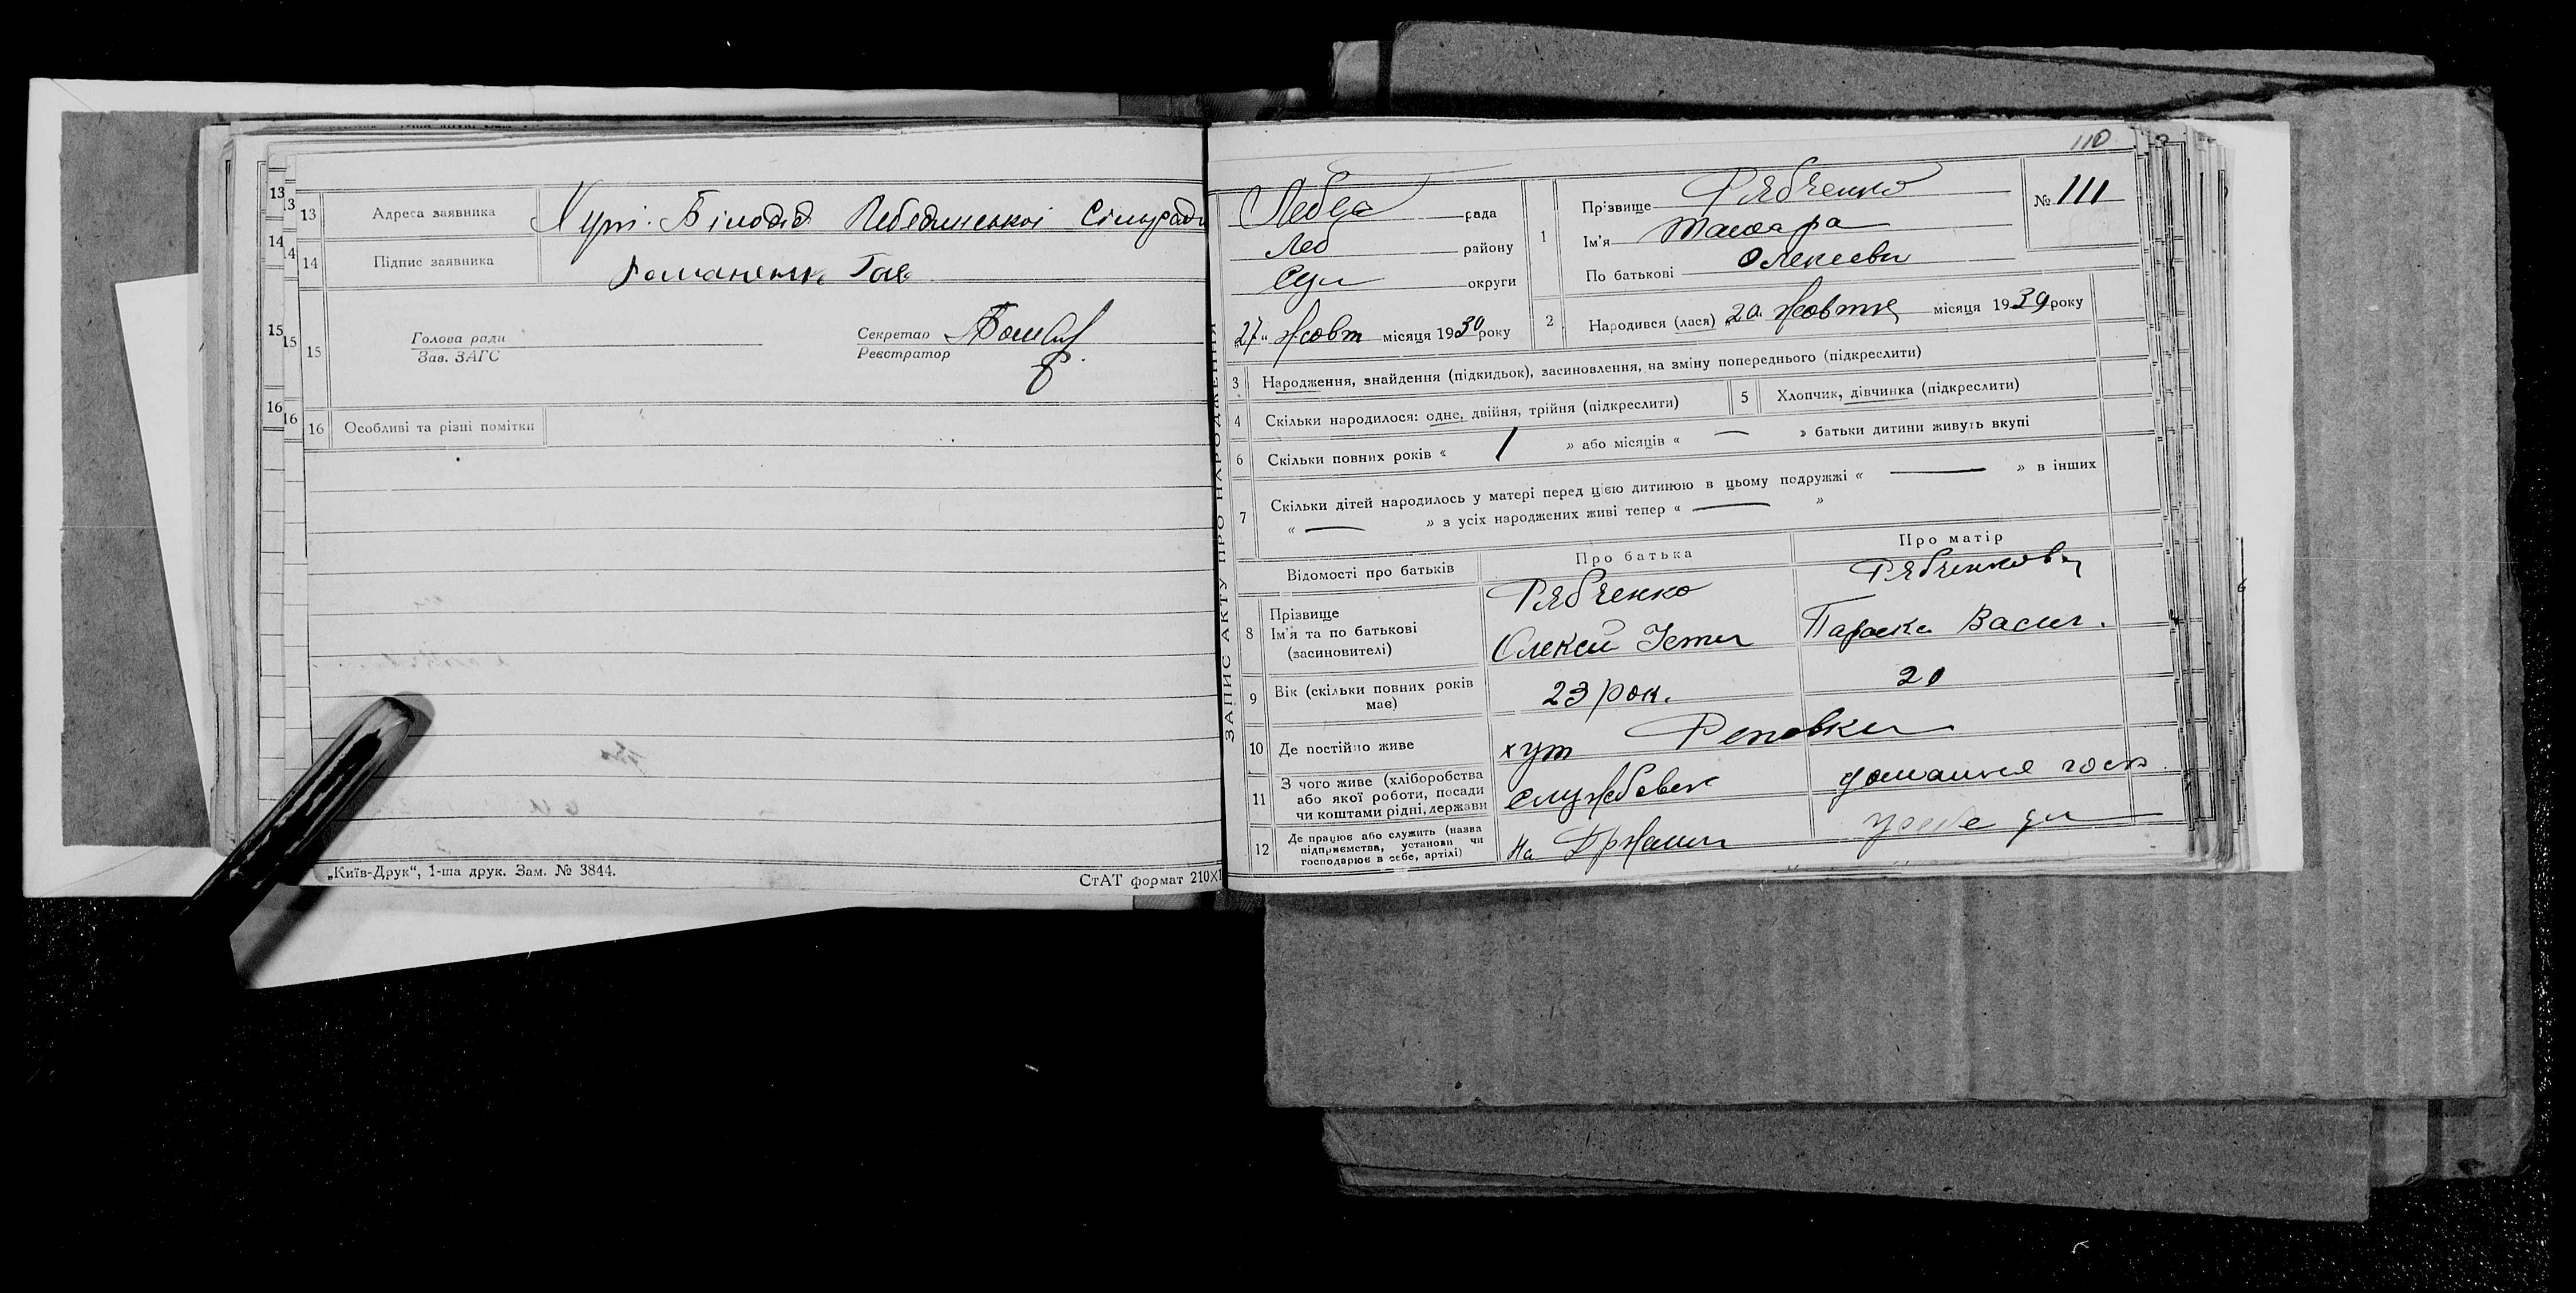 13 Адреса заявника Хут. Білодід Лебединської Сілуради
14 Підпис заявника Романенк Гав
15 Голова ради Секретар
Зав. ЗАГС Реєстратор
16 Особливі та різні помітки
„Київ-Друк“, 1-ша друк. Зам. № 3844.
СтАТ формат 210X1
ЗАПИС АКТУ ПРО НАРОДЖЕННЯ
110
Лебед рада
Леб району
Сум округи
„27“ Жовт місяця 1930 року
1 Прізвище Рябченко
Ім'я Тамара
По батькові Олексієвн
№ 111
2 Народився (лася) „20 Жовтня місяця 1930 року
3 Народження, знайдення (підкидьок), засиновлення, на зміну попереднього (підкреслити)
4 Скільки народилося: одне, двійня, трійня (підкреслити)
5 Хлопчик, дівчинка (підкреслити)
6 Скільки повних років « 1 » або місяців « — » батьки дитини живуть вкупі
7 Скільки дітей народилось у матері перед цією дитиною в цьому подружжі « — » в інших
« — » з усіх народжених живі тепер « — »
Відомості про батьків Про батька Про матір
8 Прізвище Рябченко Рябченкова
Ім'я та по батькові (засиновителі) Олексій Параска Васил.
9 Вік (скільки повних років має) 23 рок. 20
10 Де постійно живе хут Реповка
11 З чого живе (хліборобства або якої роботи, посади чи коштами рідні, держави службовец домашнє госп.
12 Де працює або служить (назва підприємства, установи чи господарює в себе, артілі) На